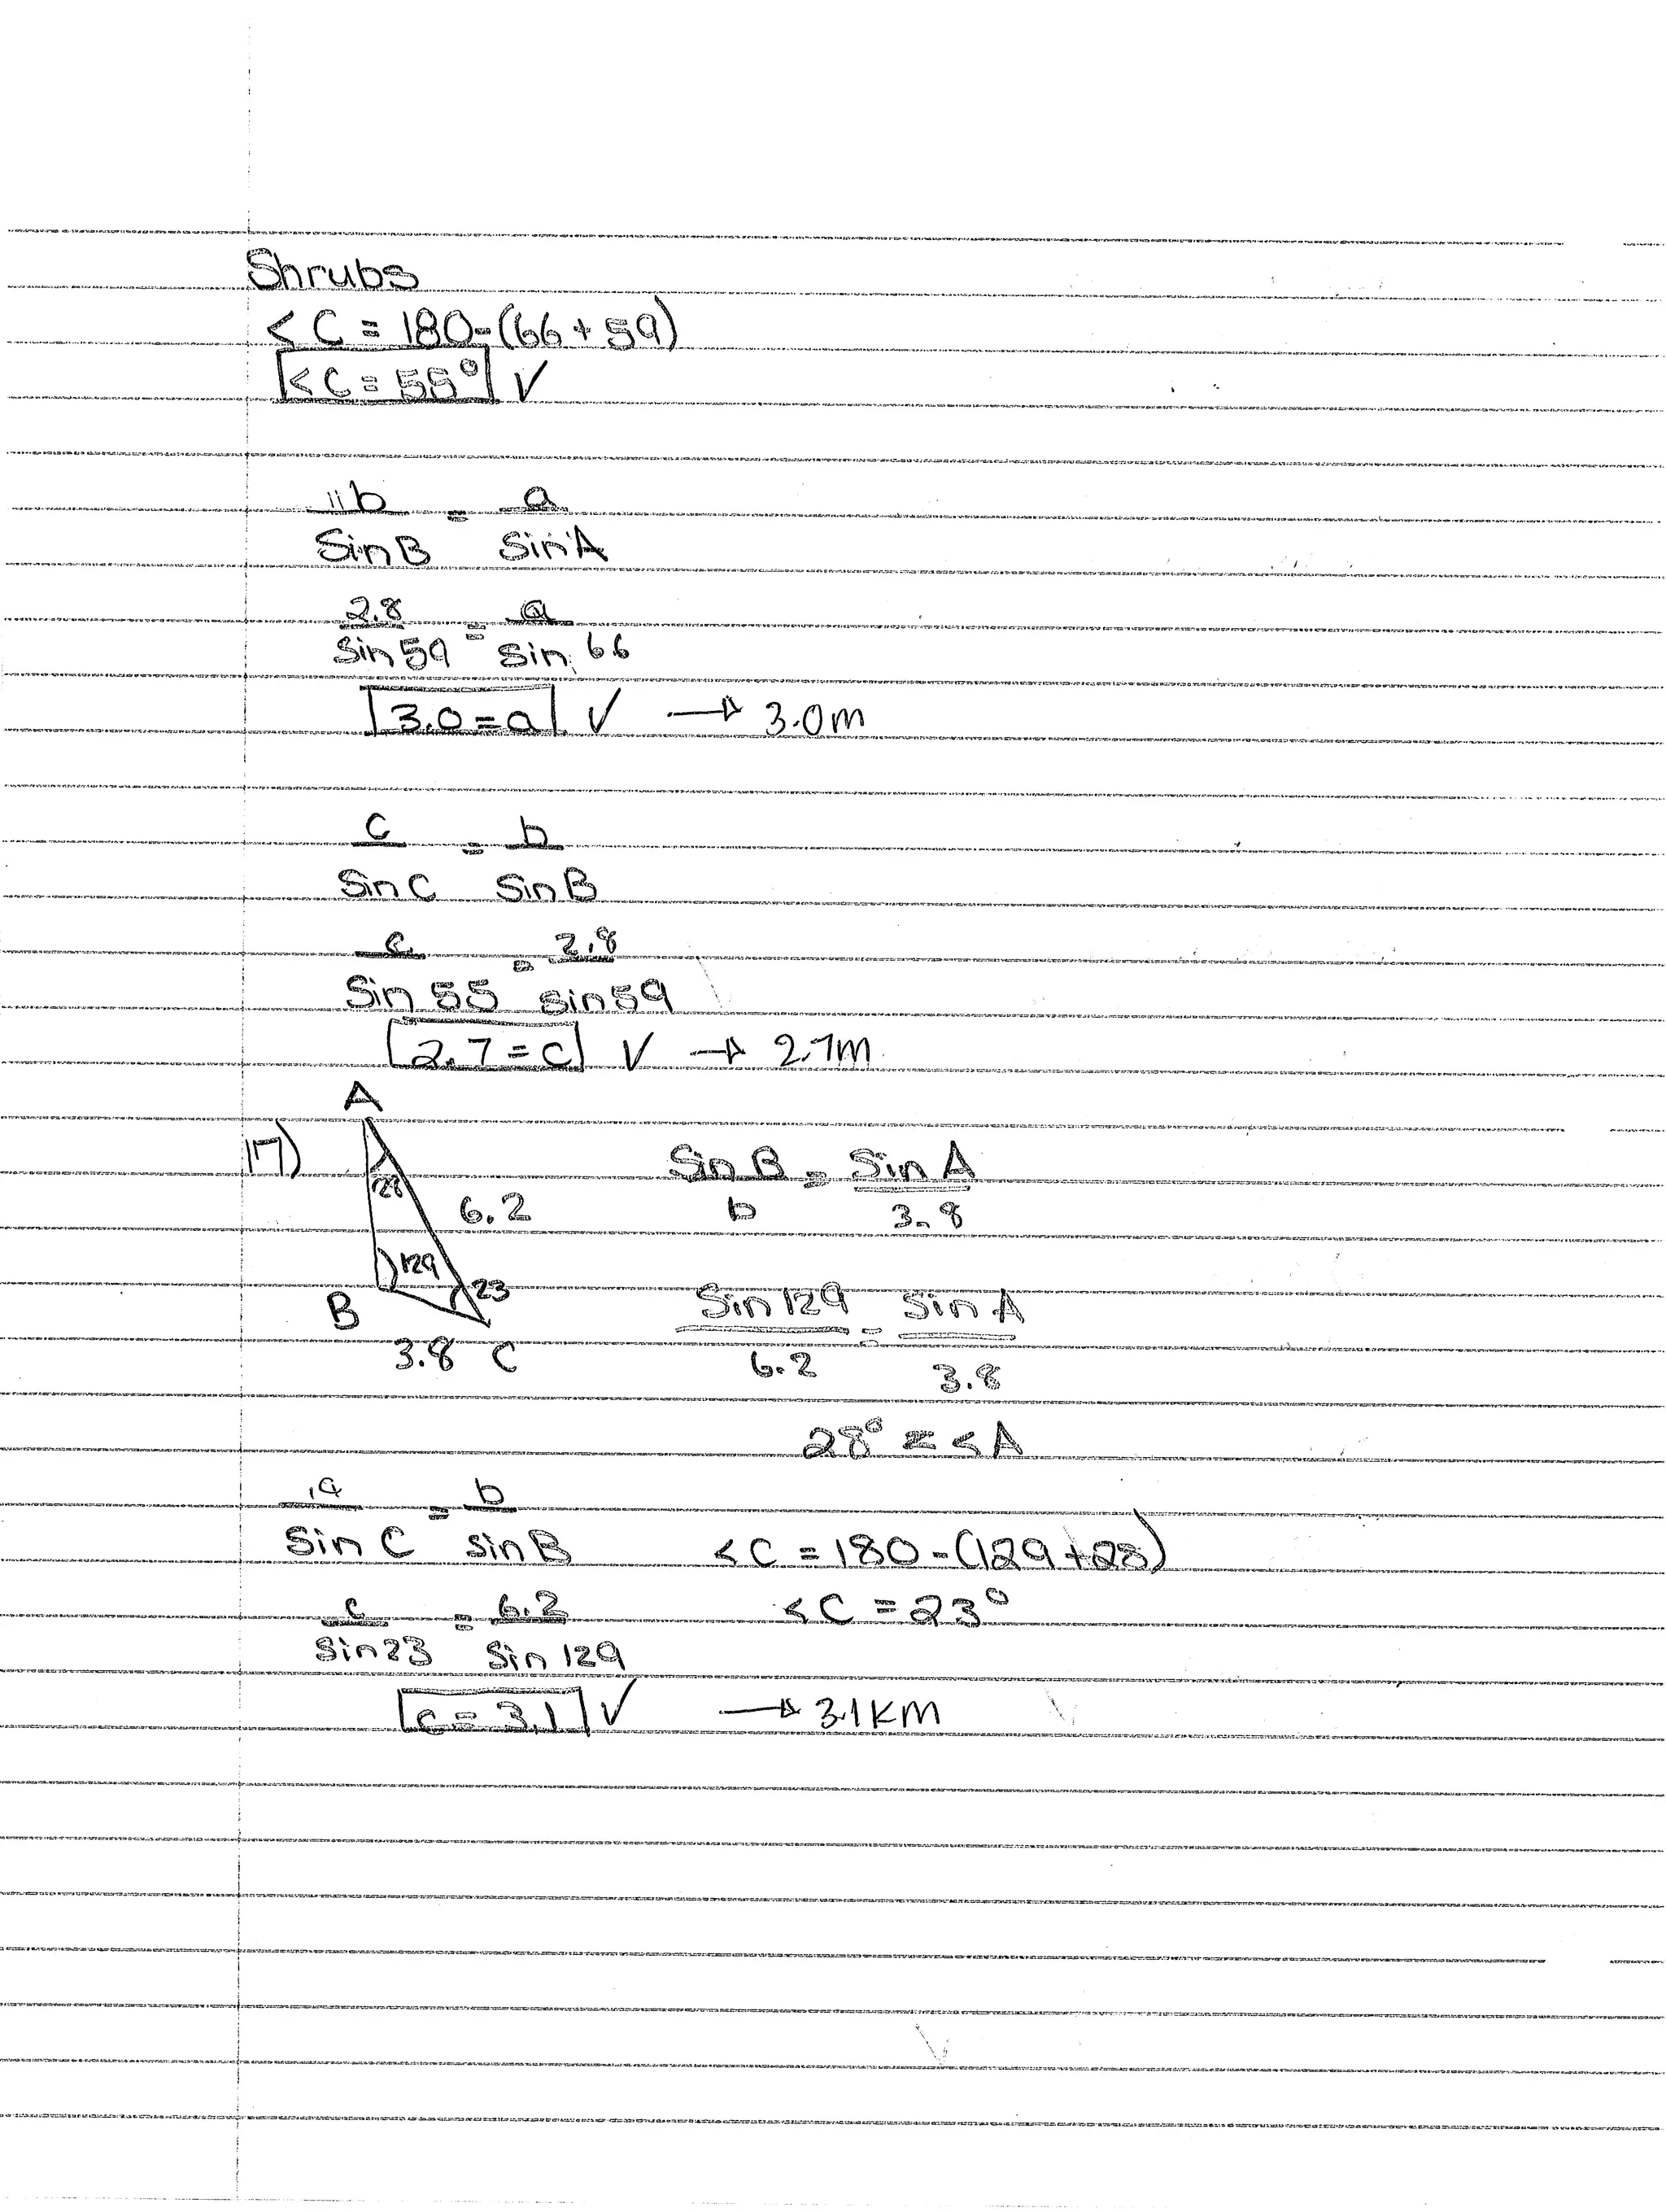 Shrubs
< C = 180-(66 + 59)
< C = 55° ✓
b = a
Sin B Sin A
2.8 = a
Sin 59 Sin 66
3.0 = a ✓ → 3.0m
c = b
Sin C Sin B
c = 2.8
Sin 55 Sin 59
2.7 = c ✓ → 2.7m
17)
A
28
6.2
129
23
B
3.8 C
Sin B = Sin A
b 3.8
Sin 129 = Sin A
6.2 3.8
28° = < A
= b
Sin C Sin B
< C = 180-(129+28)
< C = 23°
c = 6.2
Sin 23 Sin 129
c = 3.1 ✓ → 3.1KM